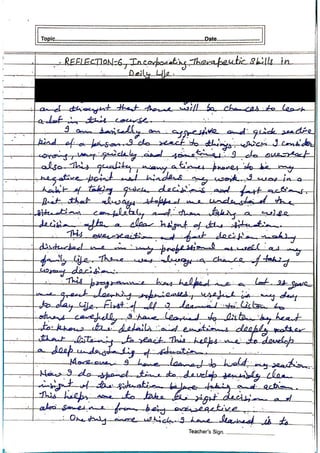 Topic Date
REFLECTION-6, Incorporating Therapeutic Skills in
Daily Life.
and thought that there will be chances to learn
a lot in this course.
I am basically an aggressive and quick reactive
kind of a person. I do react to things, which I consider
wrong, very quickly and sometimes I do overreact
also. This quality, many a times proves to be my
negative point and hinders my work. I was in a
habit of taking quick decisions and fast actions.
But that always stopped me understand the
situation completely and then taking a wise
decision after a clear of the situation.
This overreaction and fast decision making
disturbed me in my professional as well as my
family life. There was always a chance of taking
wrong decision.
This programme has helped me a lot. It gave
me great learning experiences, useful in my day
to day life. First of all I learned to listen to
others carefully. I have learned to listen by heart
to know the details and emotions deeply rather
that listening to react. This helps me to develop
a deep understanding of situation.
Moreover I have learned to hold my reaction.
Now I do spend time to develop sensibly clear
insight of the situation before taking and action.
This helps me to take the right decision and
also saves me from being overreactive.
One thing more which I have learned is to
Teacher's Sign